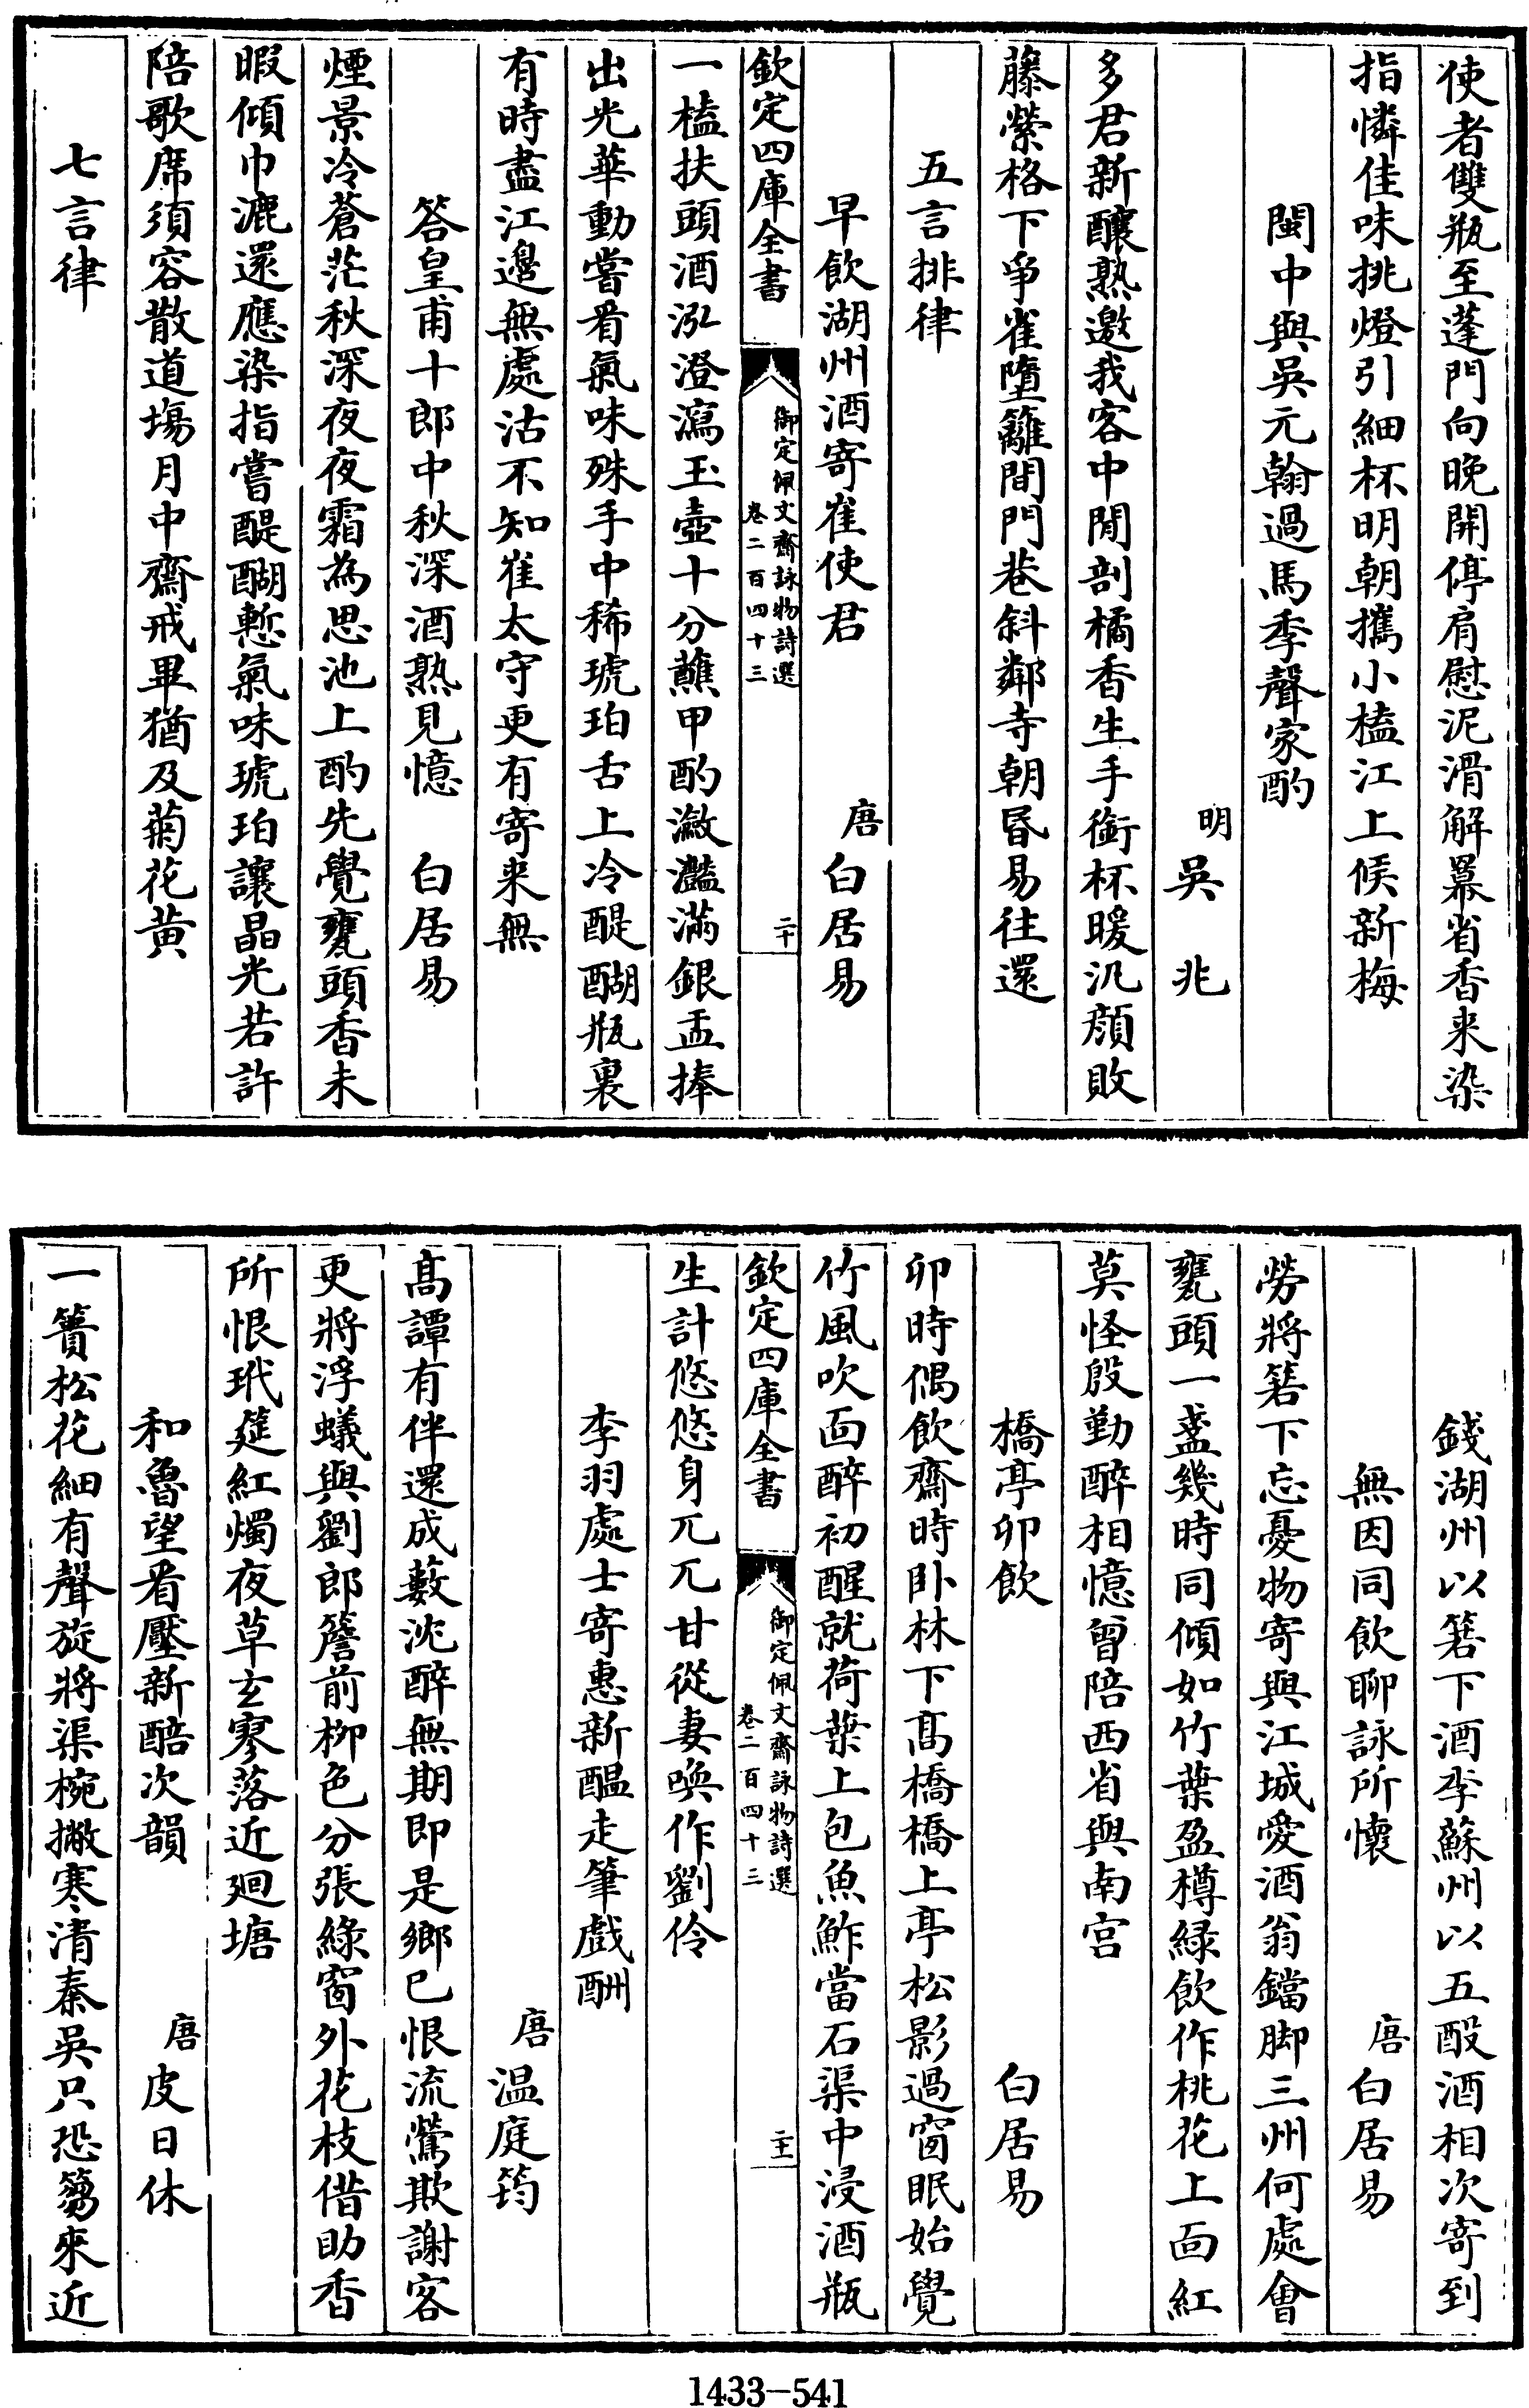 使者雙瓶至蓬門向晚開停肩慰泥滑解冪省香来染
指憐佳味挑燈引細杯明朝攜小榼江上候新梅
閩中與吳元翰過馬季聲家酌
明吳兆
多君新釀熟邀我客中閒剖橘香生手銜杯暖汎顔敗
藤縈格下爭雀墮籬間門巷斜鄰寺朝昬易往還
五言排律
早飲湖州酒寄崔使君
唐白居易
欽定四庫全書
御定佩文齋詠物詩選
卷二百四十三
二十
一榼扶頭酒泓澄瀉玉壺十分蘸甲酌瀲灩滿銀盂捧
出光華動嘗看氣味殊手中稀琥珀舌上冷醍醐瓶裏
有時盡江邊無處沽不知崔太守更有寄来無
答皇甫十郎中秋深酒熟見憶
白居易
煙景冷蒼茫秋深夜夜霜為思池上酌先覺甕頭香未
暇傾巾漉還應染指嘗醍醐慙氣味琥珀讓晶光若許
陪歌席須容散道塲月中齋戒畢猶及菊花黄
七言律
錢湖州以箬下酒李蘇州以五酘酒相次寄到
無因同飲聊詠所懷
唐白居易
勞將箬下忘憂物寄與江城愛酒翁鐺脚三州何處會
甕頭一盞幾時同傾如竹葉盈樽緑飲作桃花上面紅
莫怪殷勤醉相憶曾陪西省與南宫
橋亭卯飲
白居易
卯時偶飲齋時卧林下髙橋橋上亭松影過窗眠始覺
竹風吹面醉初醒就荷葉上包魚鮓當石渠中浸酒瓶
欽定四庫全書
御定佩文齋詠物詩選
卷二百四十三
二十一
生計悠悠身兀兀甘從妻喚作劉伶
李羽處士寄惠新醞走筆戲酬
唐温庭筠
髙譚有伴還成藪沈醉無期即是鄉已恨流鶯欺謝客
更將浮蟻與劉郎簷前柳色分張綠窗外花枝借助香
所恨玳筵紅燭夜草玄寥落近廻塘
和魯望看壓新醅次韻
唐皮日休
一簣松花細有聲旋將渠椀撇寒清秦吳只恐篘來近
1433-541